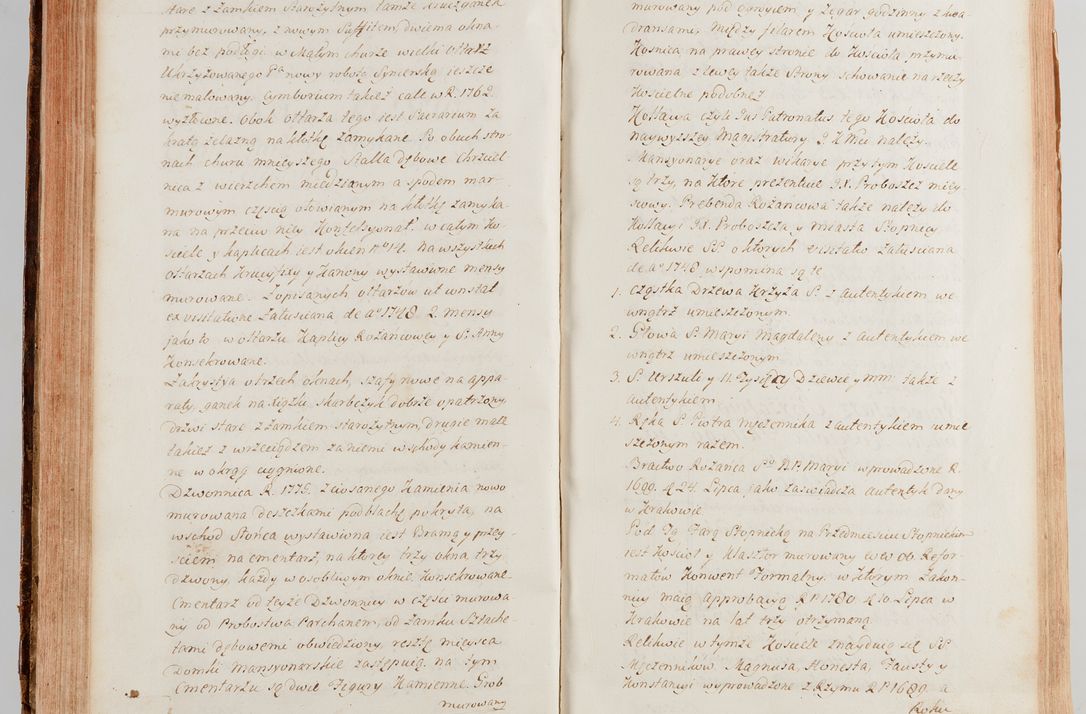 stare z Zamkiem Starożytnym także
przymurowany, z nowym Suffitem, dwiema okna-
mi bez podłogi w Małym churze wielki Ołtarz
Ukrzyżowanego Pa nowy robotą Snycerską ieszcze
nie malowany. Cymborium takież całe w R. 1762.
wyzłocone. Obok ołtarza tego iest Sacrarium Za
kratą żelazną na kłotkę zamykane. Po obuch stro-
nach churu mnieyszego Stalla dębowe Chrzciel
nica z wierzchem miedzianym a spodem mar-
murowym częścią ołowianym na kłotkę zamyka-
na na przeciw niey Konfessyonał. w całym Ko-
sciele y kaplicach iest okien No 14. na wszystkich
ołtarzach Krucyfixy y Kanony wystawione mensy
murowane. Z opisanych ołtarzow ut constat
ex visitatione Załusciana de ao 1748 2. mensy
jako to w ołtarzu Kaplicy Rożańcowey y S. Anny
Konsekrowane.
Zakrystya o trzech oknach, szafy nowe na appa-
raty, ganek na Xiążki, skarbczyk dobrze opatrzony
drzwi stare z Zamkiem starożytnym, drugie małe
takież z wrzeciądzem za niemi wschody kamien-
ne w okrąg ciągnione.
Dzwonnica R. 1775. z ciosanego Kamienia nowo
murowana deszczkami pod blachę pokryta, na
wschod Słońca wystawiona iest Bramą y przey-
sciem na cmentarz, na ktorey trzy okna trzy
dzwony, każdy w osobliwym oknie, Konsekrowane
Cmentarz od teyże Dzwonnicy w części murowa
ny od Probostwa Parchanem, od Zamku Sztache-
tami dębowemi obwiedziony, resztę mieysca
Domki Mansyonarskie zastępuią. na tym
Cmentarzu są dwie Figury Kamienne. Grob
murowany
murowany pod ogroycem y Zegar godzinny z kwa-
dransami, między filarem Kościoła umieszczony.
Kosnica na prawey stronie do Kościoła przymu-
rowana, z lewey także Strony schowanie na rzeczy
Kościelne podobneż
Kollacya czyli Jus Patronatus tego Kościoła do
naywyższey Magistratury J. K. Mci należy.
Mansyonarye oraz wikarye przy tym Kościele
są trzy, na ktore prezentuie J.X. Proboszcz miey-
scowy. Prebenda Rożancowa także należy do
Kollacyi JX. Proboszcza y miasta Stopnicy
Relikwie SS. o ktorych visitatio Załusciana
de ao 1748 wspomina są te
1. Cząstka Drzewa Krzyża S. z autentykiem we
wnątrz umieszczonym.
2. Głowa S. Maryi Magdaleny z autentykiem we
wnątrz umieszczonym
3. S. Urszuli y 11. Tysięcy Dziewic y mm. także z
autentykiem
4. Ręka S. Piotra męczennika z autentykiem umie
szczonym razem.
Bractwo Rożańca Sgo N.P. Maryi wprowadzone R.
1690. d. 24. Lipca jako zaswiadcza autentyk dany
w Krakowie
Pod Tą Parą Stopnicką na Przedmiesciu Stopnickim
iest Kościoł y Klasztor murowany WW. OO. Refor-
matów Konwent Formalny. w ktorym Zakon-
nicy maią Approbacyą R. P. 1780. d. 10. Lipca w
Krakowie na lat trzy otrzymaną
Relikwie w tymże Kościele znayduią się SS.
Męczennikow Magnusa, Honesta, Fausty y
Konstancyi wyprowadzone z Rzymu R. P. 1689. a
Roku